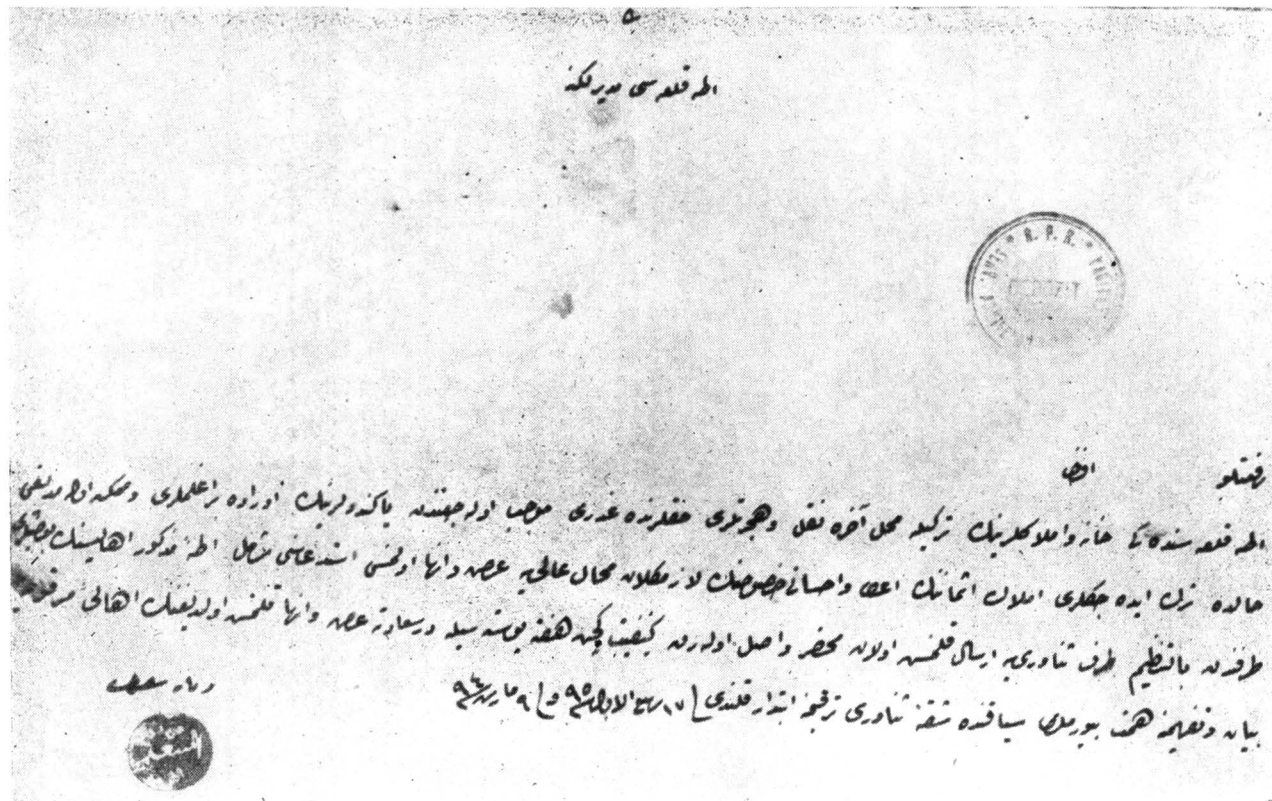 اطه قلعه سی مدیرلكنه
رفعتلو افندی
اطه قلعه سنده خانه و املاكلرینك تركیله محل آخره نقل و هجرتلری حقلرنده غدری موجب اوله جغندن یا كندولرینك اوراده براغلملری و ممكن اوله مدیغی
حالده ترك ایده جكلری املاك اثماننك اعطا و احسانی خصوصنك لازمكلان محال عالیه عرض و انها اولنمسی استدعاسنی شامل اطهٔ مذكور اهالیسنك
طرفندن بالتنظیم طرف ثناوری یه ارسال قلنمش اولان محضر واصل اوله رق كیفیت كچن هفته پوسته سیله درسعادته عرض و انها قلنمش اولدیغنك اهالی مرقومه یه
بیان و تفهیمنه همت بیورملری سیاقنده شقهٔ ثناوری ترقیمنه ابتدار قلندی ۱۷ ربیع الاول ۹۵ و ۹ مارت ۹۴
R. P. R.